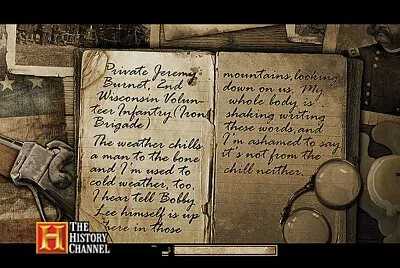 Private Jeremy
Burnet, 2nd
Wisconsin Volun-
teer Infantry (Iron
Brigade)
The weather chills
a man to the bone
and I'm used to
cold weather, too.
I hear tell Bobby
Lee himself is up
there in those
mountains, looking
down on us. My
whole body is
shaking writing
these words, and
I'm ashamed to say
it's not from the
chill neither.
H
THE
HISTORY
CHANNEL